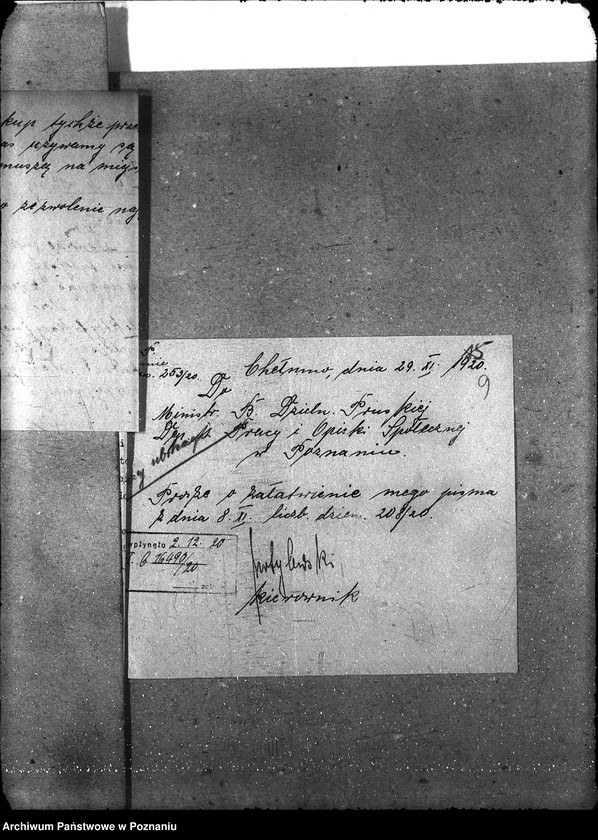 kup tychże prac
as używamy są
muszą na miejs
o zezwolenie na
253/20. Chełmno, dnia 29. XI. 1920.
15
9
Do
Ministr. B. Dzieln. Pruskiej
Dep. Pracy i Opieki Społecznej
w Poznaniu.
Proszę o załatwienie mego pisma
z dnia 8. XI. liczb. dzien. 208/20.
wpłynęło 2. 12. 20
G 16490/20
kierownik
Archiwum Państwowe w Poznaniu